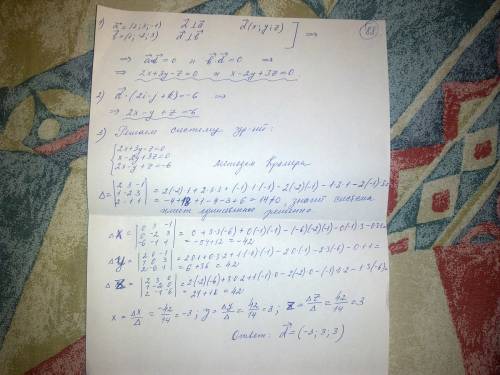 1) a⃗ = (2; 3; -1)   d⃗ ⊥ a⃗   d⃗ (x; y; z) ] ⇒
b⃗ = (1; -2; 3)   d⃗ ⊥ b⃗
⇒ a⃗ d⃗ = 0 и b⃗·d⃗ = 0 ⇒
⇒ 2x+3y-z=0 и x-2y+3z=0.
2) d⃗·(2i-j+k)=-6 ⇒
⇒ 2x-y+z=-6
3) Решаем систему ур-ий:
{2x+3y-z=0
x-2y+3z=0
2x-y+z=-6 методом Крамера
Δ = |2 3 -1
1 -2 3
2 -1 1| = 2(-2)·1+2·3·3+(-1)·1·(-1)-2(-2)(-1)-1·3·1-2(-1)·3=
= -4+18+1-4-3+6=14≠0, значит система
имеет единственное решение
ΔX = |0 3 -1
0 -2 3
-6 -1 1| = 0+3·3(-6)+0(-1)(-1)-(-6)(-2)(-1)
= -54+12=-42
ΔY = |2 0 -1
1 0 3
2 -6 1| =
6+36=42
ΔZ = |2 3 0
1 -2 0
2 -1 -6| =
24+18=42
x = Δx/Δ = -42/14 = -3; y = Δy/Δ = 42/14 = 3; z = Δz/Δ = 42/14 = 3
Ответ: d⃗ = (-3; 3; 3)